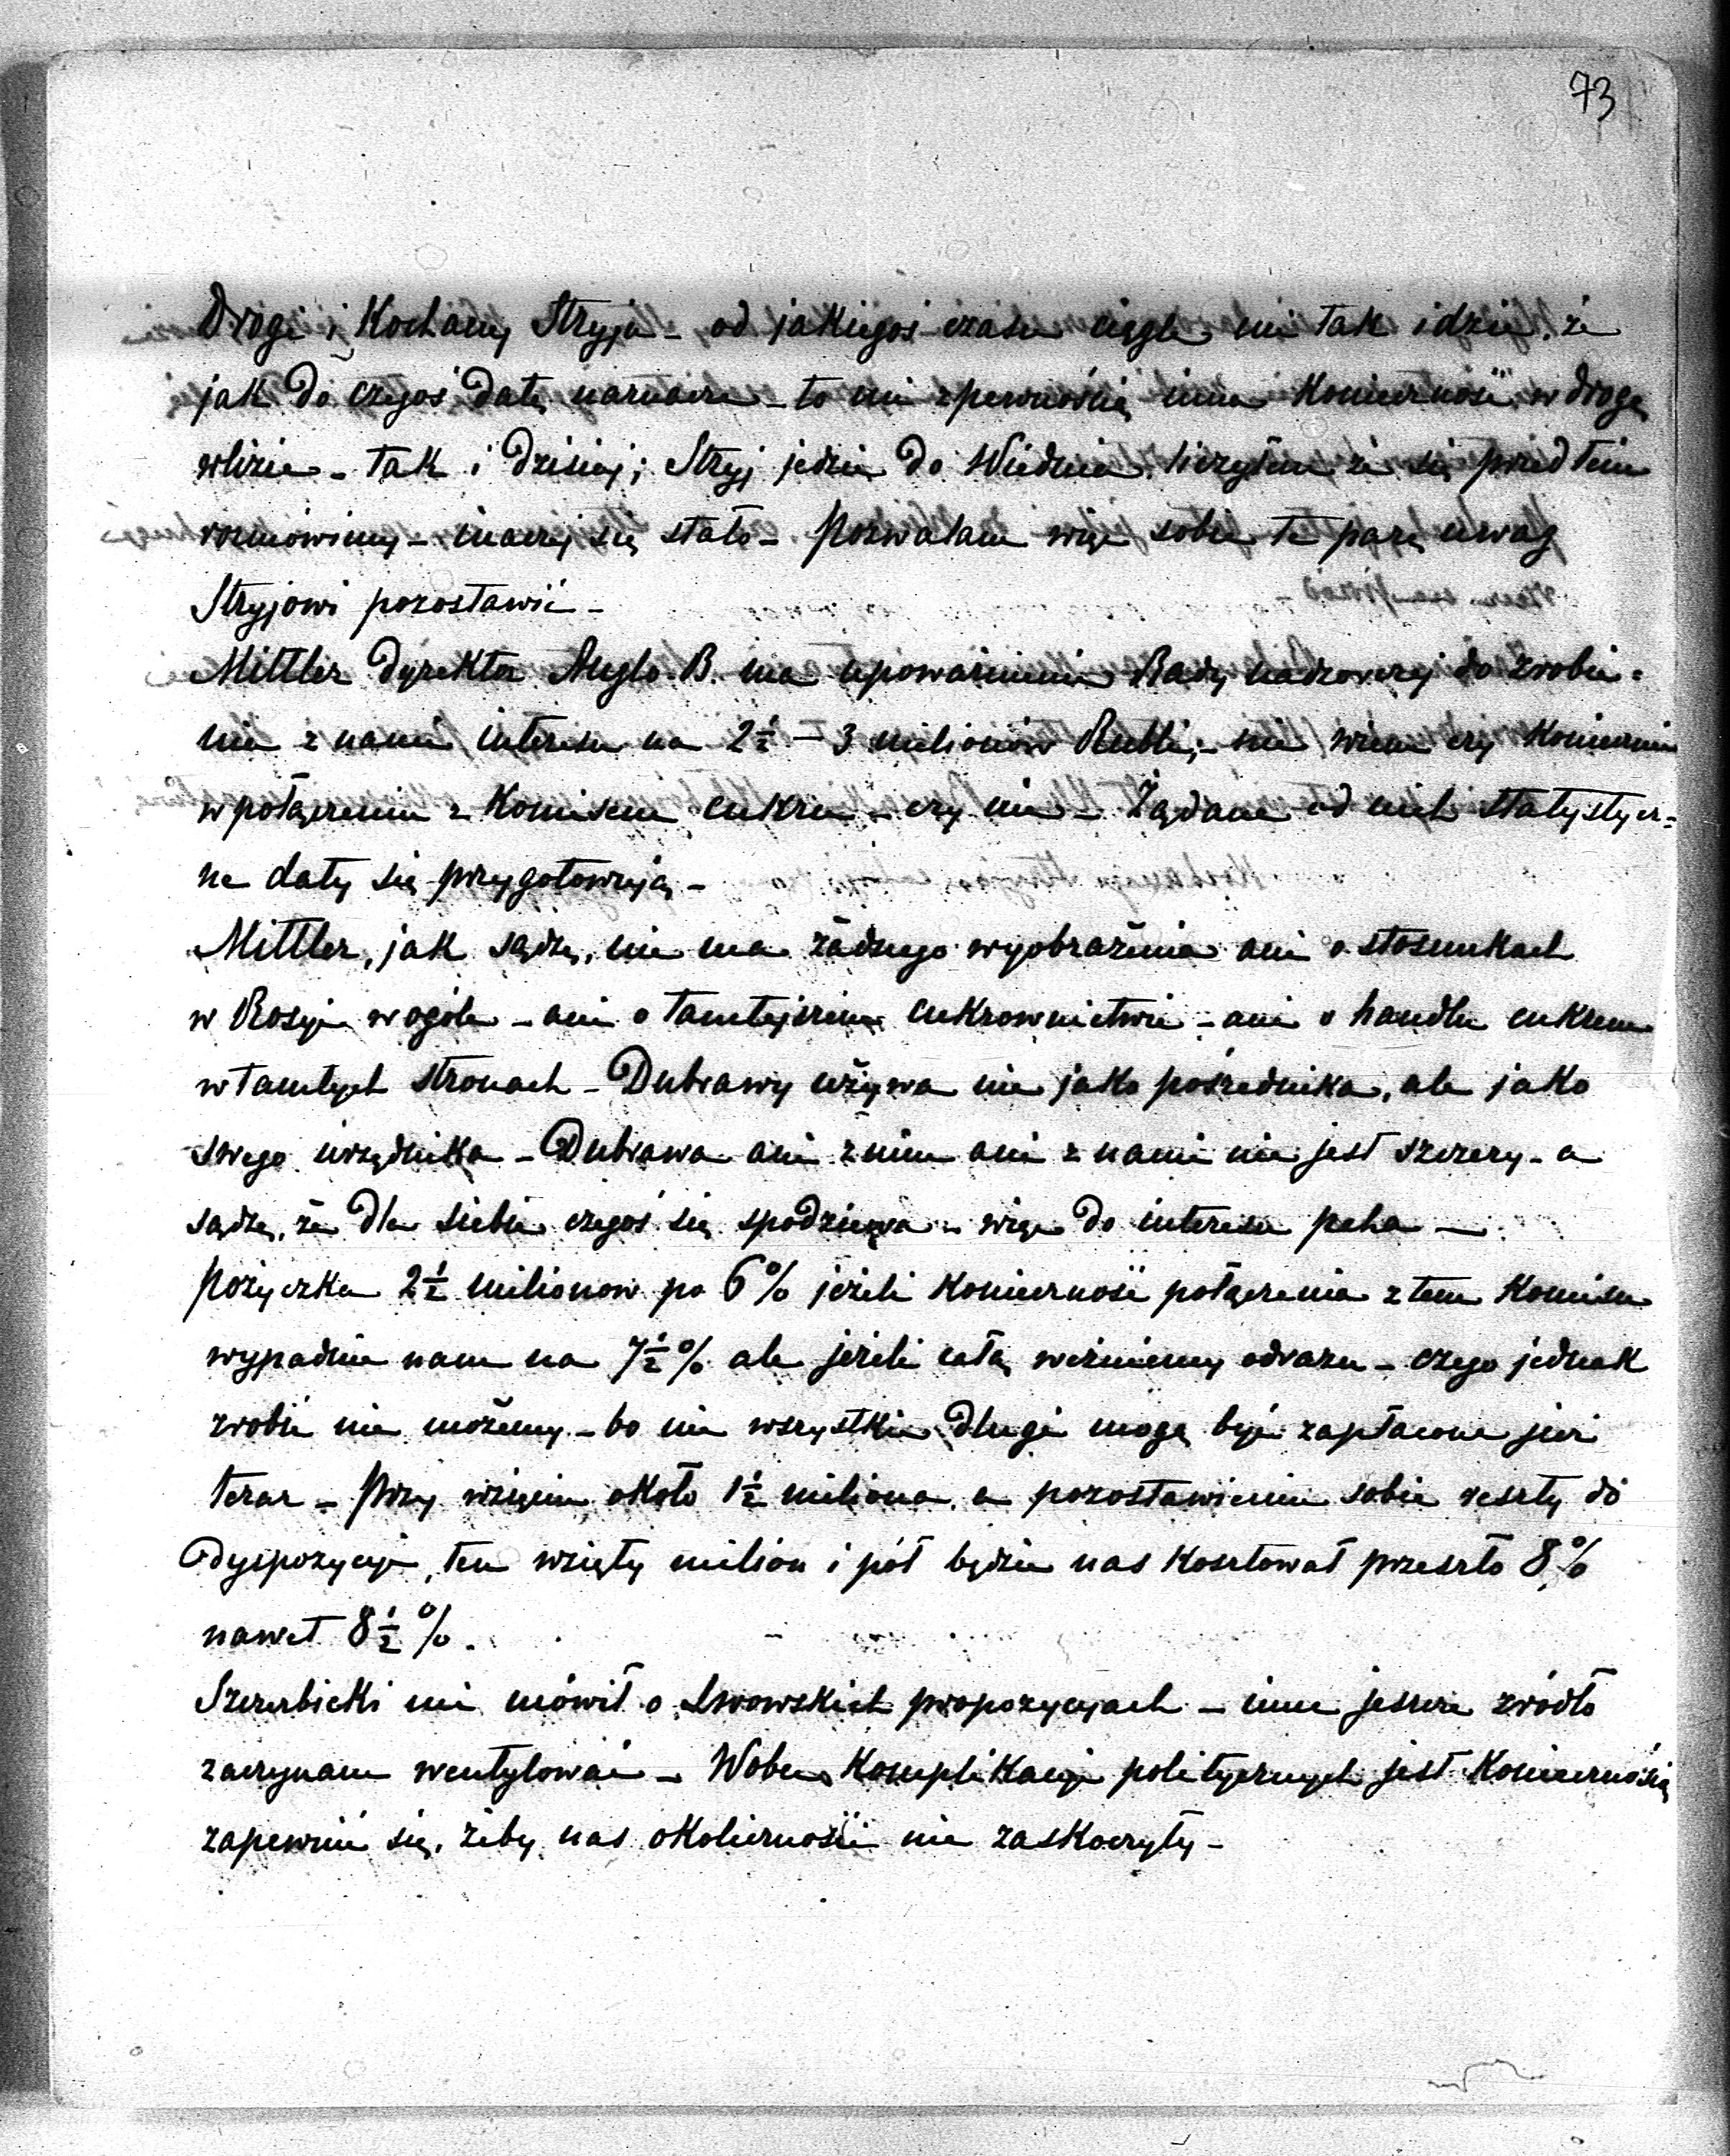 73
Drogi i Kochany Stryju – od jakiegoś czasu ciągle mi tak idzie, że
jak do czegoś datę naznaczę – to mi z pewnością inna konieczność w drogę
wlizie – tak i dzisiaj; Stryj jedzie do Wiednia, liczyłem że się przedtem
rozmówimy – inaczej się stało – Pozwalam więc sobie te parę uwag
Stryjowi pozostawić –
Mittler Dyrektor Anglo-B. ma upoważnienie Rady nadzorczej do zrobie=
nia z nami interesu na 2½ – 3 milionów Rubli; – nie wiem czy koniecznie
w połączeniu z Komisem cukru – czy nie – Żądane od nich statystycz=
ne daty się przygotowują –
Mittler, jak sądzę, nie ma żadnego wyobrażenia ani o stosunkach
w Rosyi wogóle – ani o tamtejszem cukrownictwie – ani o handlu cukrem
w tamtych stronach – Dubrawy używa nie jako pośrednika, ale jako
swego urzędnika – Dubrawa ani z nim ani z nami nie jest szczery – a
sądzę, że dla siebie czegoś się spodziewa – więc do interesu pcha –
Pożyczka 2½ milionow po 6% jeżeli konieczność połączenia z tem Komisu
wypadnie nam na 7½% ale jeżeli całą weźmiemy odrazu – czego jednak
zrobić nie możemy – bo nie wszystkie długi mogą być zapłacone już
teraz – Przy wzięciu około 1½ miliona, a pozostawieniu sobie reszty do
dyspozycyi, ten wzięty milion i pół będzie nas kosztował przeszło 8%
nawet 8½%.
Szczerbicki mi mówił o Lwowskich propozycyach – inne jeszcze źródło
zaczynam wentylować – Wobec komplikacyi politycznych jest koniecznością
zapewnić się, żeby nas okoliczności nie zaskoczyły –